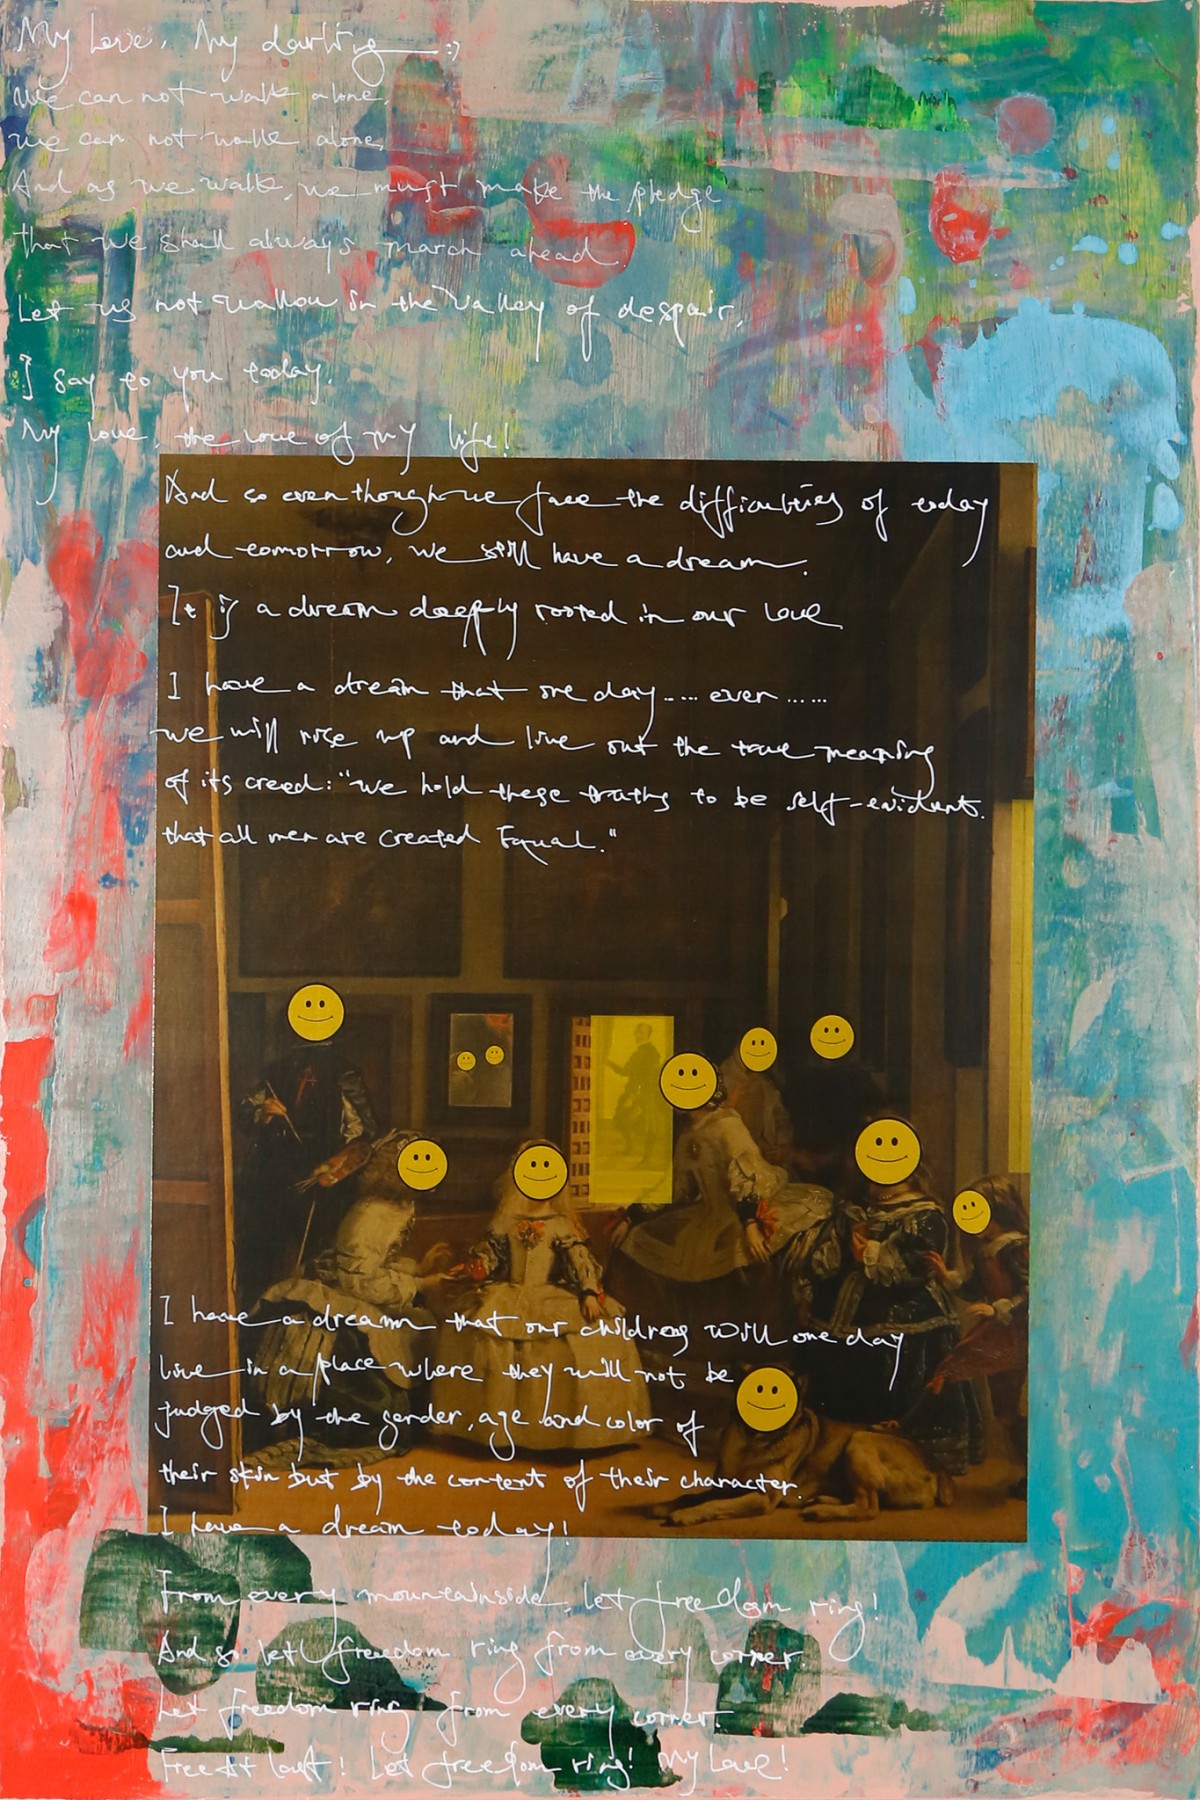 My Love, My darling :)
We can not walk alone,
we can not walk alone,
And as we walk, we must make the pledge
that we shall always march ahead.
Let us not wallow in the valley of despair,
I say to you today.
My love, the love of my life!
And so even though we face the difficulties of today
and tomorrow, we still have a dream.
It is a dream deeply rooted in our love
I have a dream that one day..... ever......
we will rise up and live out the true meaning
of its creed: "we hold these truths to be self-evident.
that all men are created Equal."
I have a dream that our children will one day
live in a place where they will not be
judged by the gender, age and color of
their skin but by the content of their character.
I have a dream today!
From every mountainside, let freedom ring!
And so let freedom ring from every corner.
Let freedom ring from every corner.
Free at last! Let freedom ring! My Love!